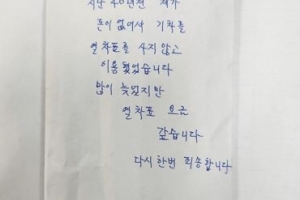 지난 40년전 제가
돈이 없어서 기차를
열차표를 사지 않고
이용 했었습니다
많이 늦었지만
열차표 요금
갚습니다
다시 한번 죄송합니다